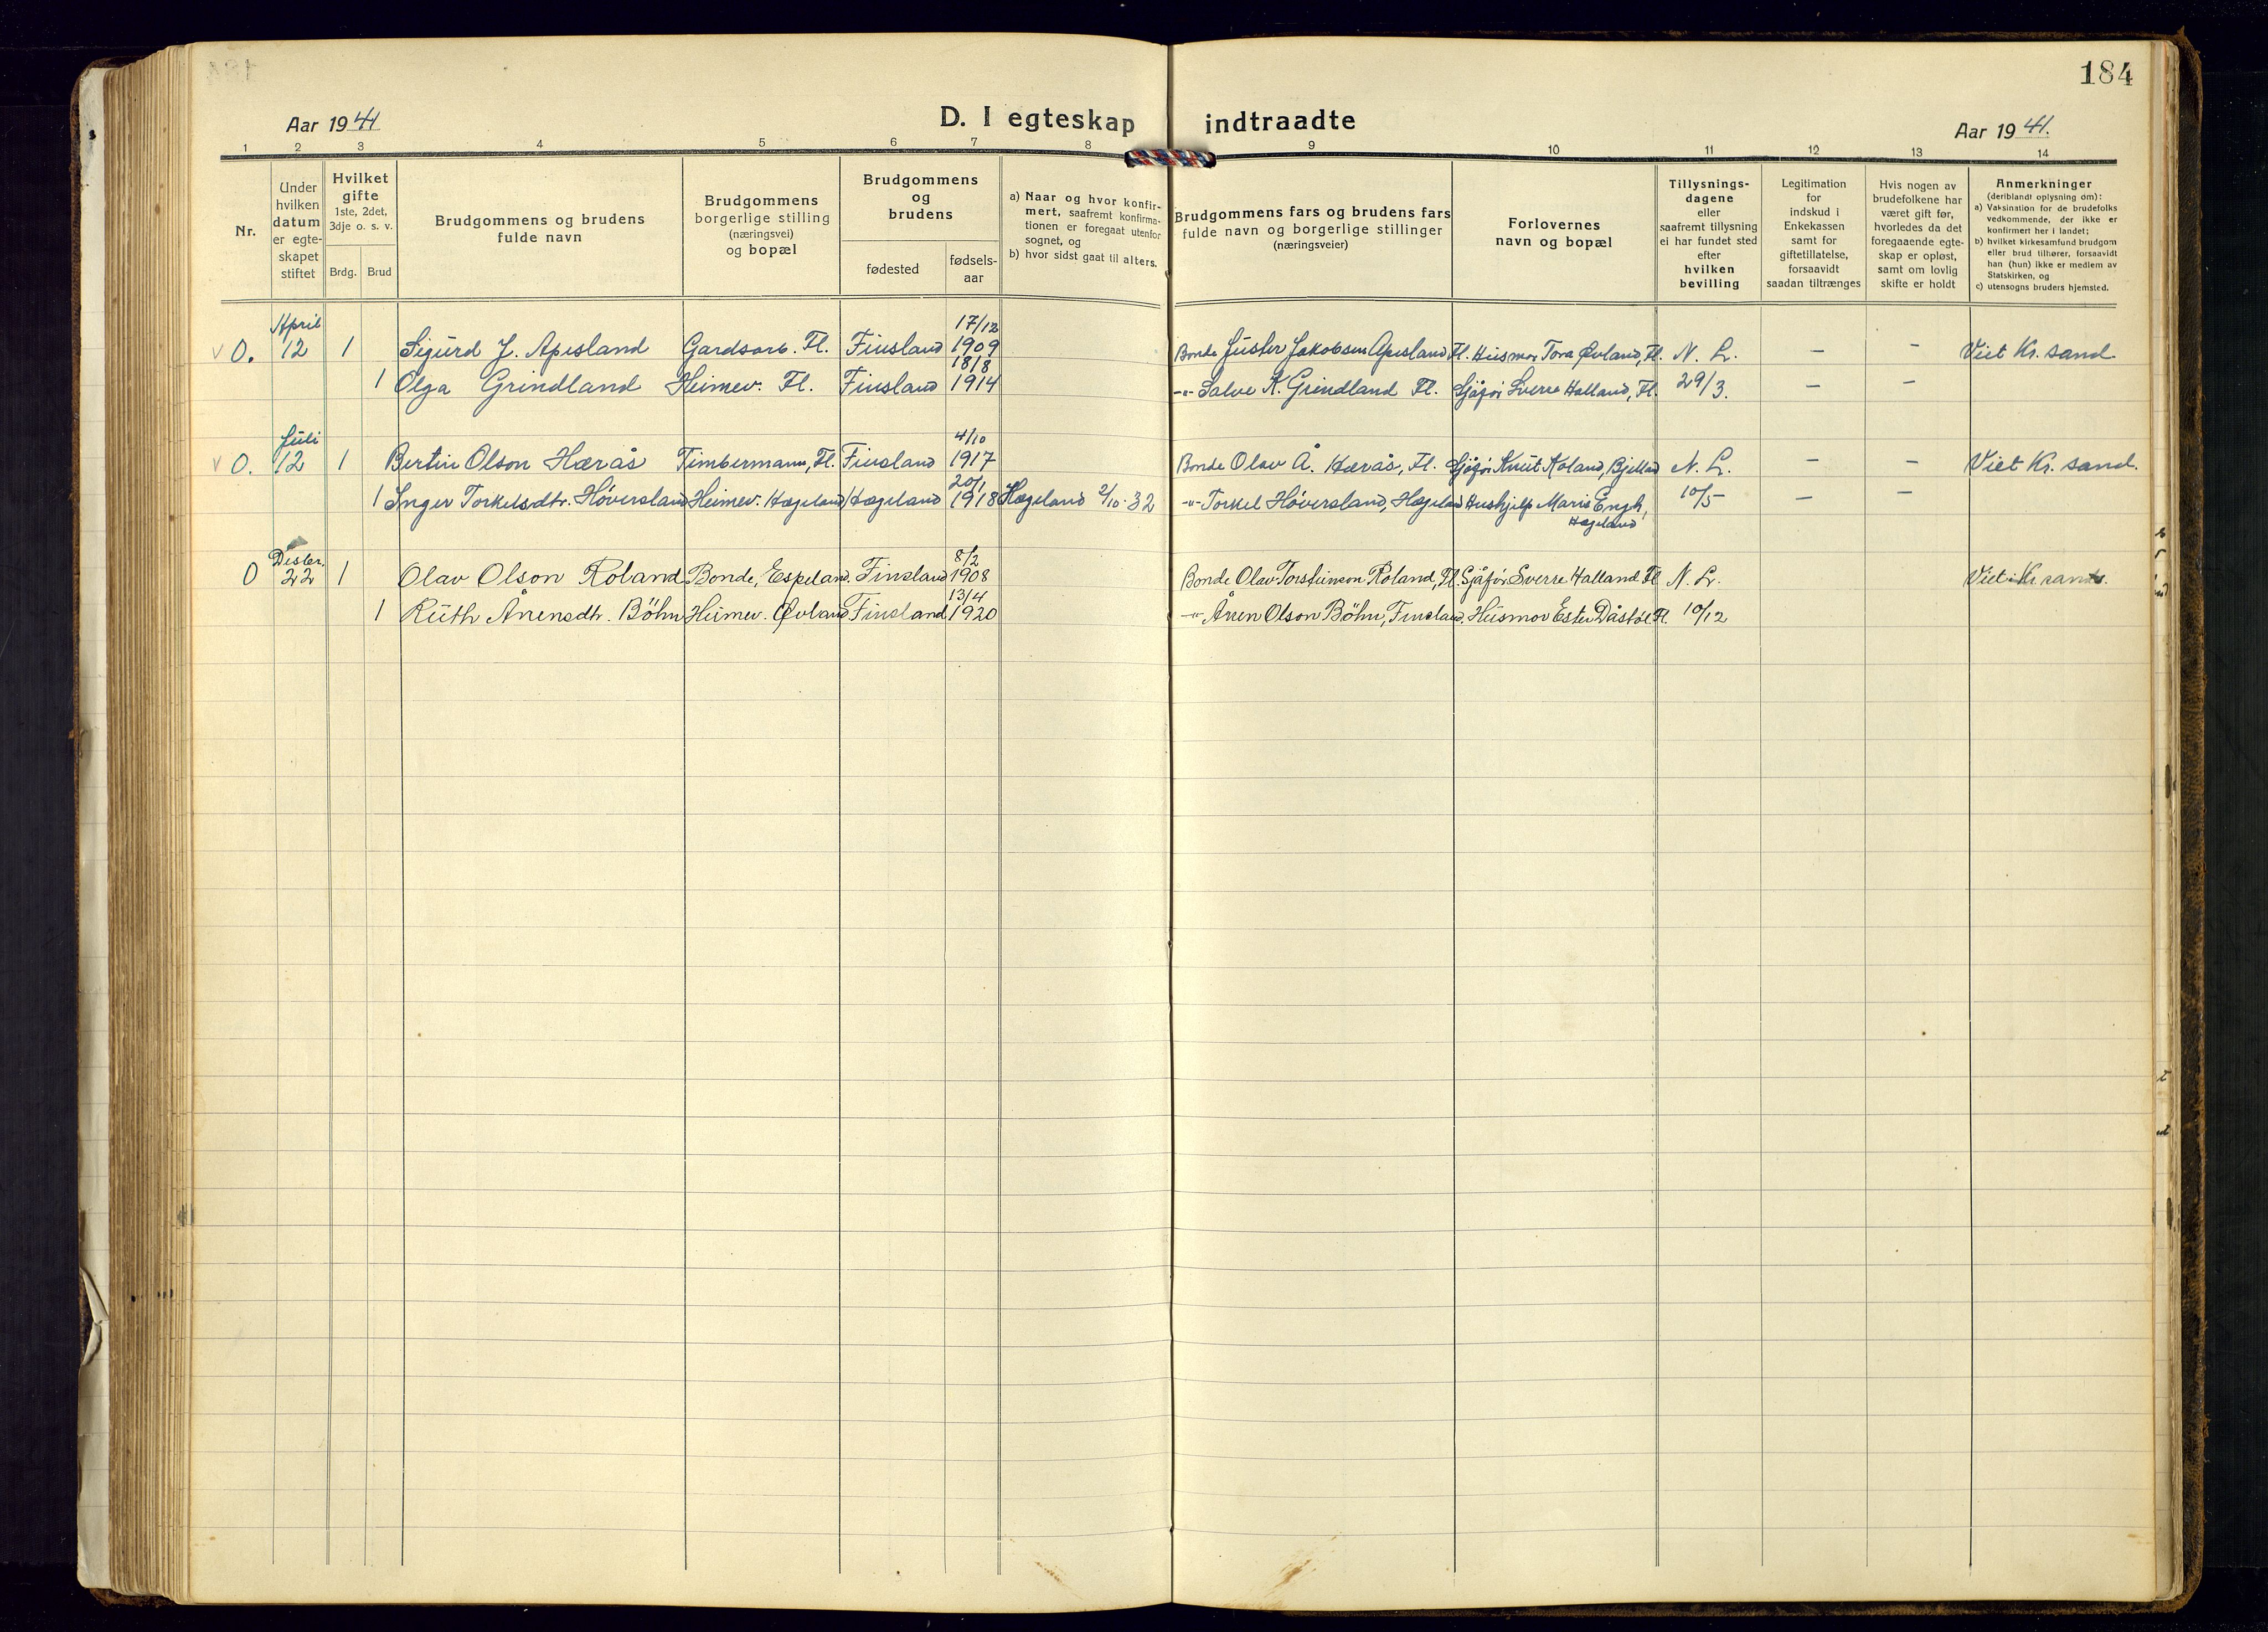 184
Aar 1941 D. I egteskap indtraadte Aar 1941.
1 2 3 4 5 6 7 8 9 10 11 12 13 14
Nr.
Under hvilken datum er egte-skapet stiftet
Hvilket gifte 1ste, 2det, 3dje o. s. v.
Brdg. Brud
Brudgommens og brudens fulde navn
Brudgommens borgerlige stilling (næringsvei) og bopæl
Brudgommens og brudens
fødested fødsels-aar
a) Naar og hvor konfir-mert, saafremt konfirma-tionen er foregaat utenfor sognet, og
b) hvor sidst gaat til alters.
Brudgommens fars og brudens fars fulde navn og borgerlige stillinger (næringsveier)
Forlovernes navn og bopæl
Tillysnings-dagene eller saafremt tillysning ei har fundet sted efter hvilken bevilling
Legitimation for indskud i Enkekassen samt for giftetillatelse, forsaavidt saadan tiltrænges
Hvis nogen av brudefolkene har været gift før, hvorledes da det foregaaende egte-skap er opløst, samt om lovlig skifte er holdt
Anmerkninger (deriblandt oplysning om):
a) Vaksination for de brudefolks vedkommende, der ikke er konfirmert her i landet;
b) hvilket kirkesamfund brudgom eller brud tilhører, forsaavidt han (hun) ikke er medlem av Statskirken, og
c) utensogns bruders hjemsted.
April 17/12
V O. 12 1 Sigurd J. Apesland Gardsarb. Fl. Finsland 1909 Bonde Juster Jakobsen Apesland Fl. Husmor Tora Øvland, Fl. N. L. — — Viet Kr. sand
18/8
1 Olga Grindland Heimev. Fl. Finsland 1914 -"- Salve K. Grindland Fl. Sjåfør Sverre Halland, Fl. 29/3. — —
Juli 4/10
V O. 12 1 Bertin Olson Hærås Timbermann, Fl. Finsland 1917 Bonde Olav Å. Hærås, Fl. Sjåfør Knut Roland, Bjelland N. L. — — Viet Kr. sand.
20/1
1 Inger Torkelsdtr. Höversland Heimev. Hægeland Hægeland 1918 Hægeland 2/10-32 -"- Torkel Höversland, Hægeland Hushjelp Marie Engh, Hægeland 10/5 — —
Desbr. 8/2
O 22 1 Olav Olson Roland Bonde, Espeland. Finsland 1908 Bonde Olav Torsteinson Roland, Fl. Sjåfør Sverre Halland Fl N. L. Viet i Kr. sand.
13/4
1 Ruth Ånensdtr. Böhn Heimev. Øvland Finsland 1920 -"- Ånen Olson Böhn, Finsland. Husmor Ester Dåstöl Fl. 10/12